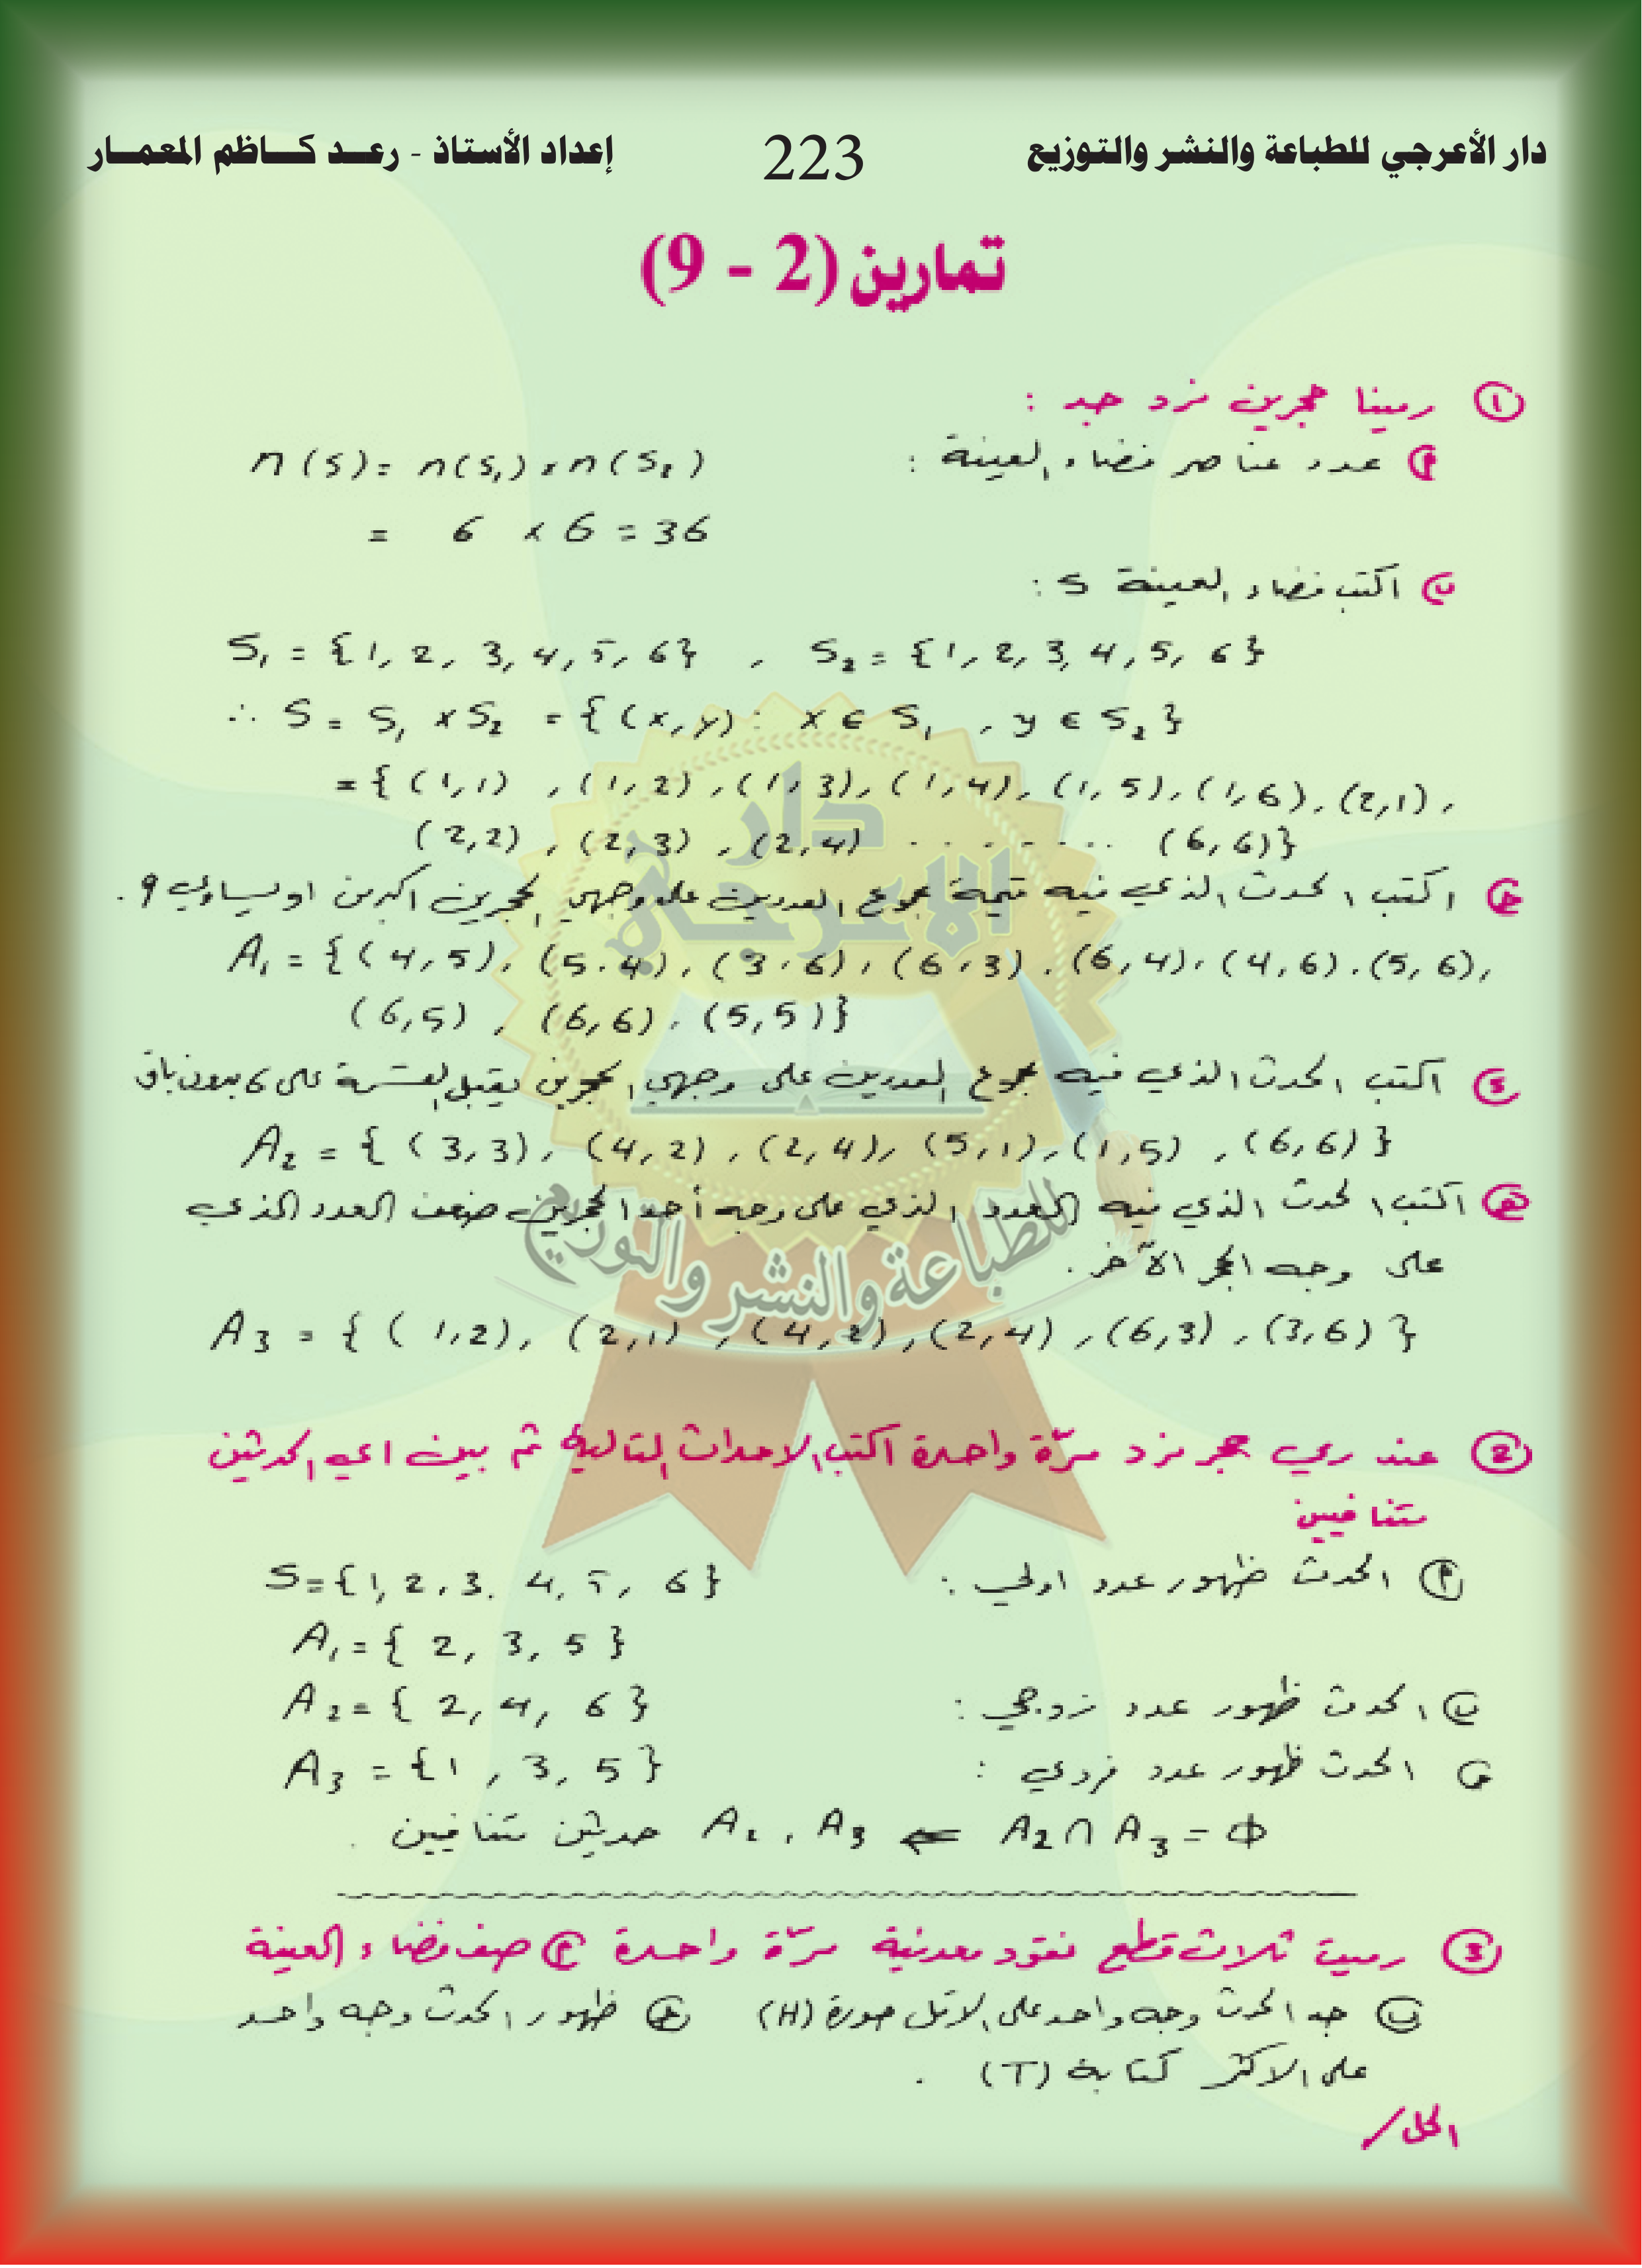 دار الأعرجي للطباعة والنشر والتوزيع 223 إعداد الأستاذ - رعد كاظم المعمار
تمارين (2 - 9)
① رمينا حجرين نرد جد :
أ عدد عناصر فضاء العينة : n(S) = n(S₁) × n(S₂)
= 6 × 6 = 36
ب اكتب فضاء العينة S :
S₁ = {1, 2, 3, 4, 5, 6} , S₂ = {1, 2, 3, 4, 5, 6}
∴ S = S₁ × S₂ = {(x, y) : x ∈ S₁ , y ∈ S₂}
= {(1,1) , (1,2) , (1,3), (1,4), (1,5), (1,6), (2,1) ,
(2,2) , (2,3) , (2,4) ........ (6,6)}
ج اكتب الحدث الذي فيه قيمة مجموع العددين على وجهي الحجرين اكبر من او يساوي 9 .
A₁ = {(4,5), (5,4), (3,6), (6,3), (6,4), (4,6), (5,6),
(6,5) , (6,6) , (5,5)}
د اكتب الحدث الذي فيه مجموع العددين على وجهي الحجرين يقبل القسمة على 6 بدون باق
A₂ = {(3,3), (4,2), (2,4), (5,1), (1,5) , (6,6)}
هـ اكتب الحدث الذي فيه العدد الذي على وجه أحد الحجرين ضعف العدد الذي
على وجه الحجر الآخر .
A₃ = {(1,2), (2,1) , (4,2), (2,4) , (6,3) , (3,6)}
دار الاعرجي
للطباعة والنشر والتوزيع
② عند رمي حجر نرد مرّة واحدة اكتب الاحداث التالية ثم بين اي الحدثين
متنافيين
أ الحدث ظهور عدد اولي : S = {1, 2, 3, 4, 5, 6}
A₁ = {2, 3, 5}
ب الحدث ظهور عدد زوجي : A₂ = {2, 4, 6}
ج الحدث ظهور عدد فردي : A₃ = {1, 3, 5}
A₂ ∩ A₃ = Φ ⇐ A₂ , A₃ حدثين متنافيين .
③ رميت ثلاث قطع نقود معدنية مرّة واحدة أ صف فضاء العينة
ب جد الحدث وجه واحد على الاقل صورة (H) ج ظهور الحدث وجه واحد
على الاكثر كتابة (T) .
الحل /